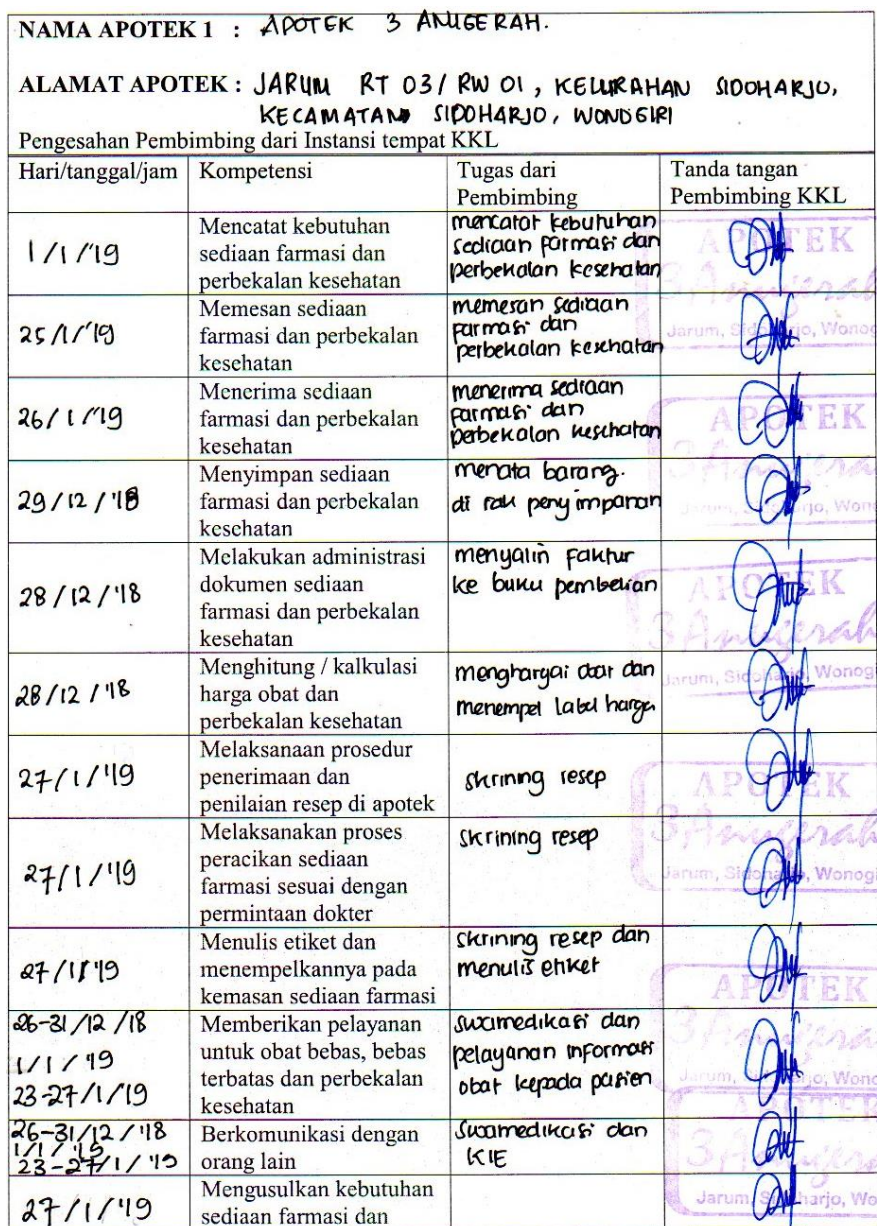 NAMA APOTEK 1 : APOTEK 3 ANUGERAH.
ALAMAT APOTEK : JARUM RT 03/ RW 01, KELURAHAN SIDOHARJO,
KECAMATAN SIDOHARJO, WONOGIRI
Pengesahan Pembimbing dari Instansi tempat KKL
Hari/tanggal/jam
Kompetensi
Tugas dari
Pembimbing
Tanda tangan
Pembimbing KKL
1/1/'19
Mencatat kebutuhan
sediaan farmasi dan
perbekalan kesehatan
mencatat kebutuhan
sediaan farmasi dan
perbekalan kesehatan
25/1/'19
Memesan sediaan
farmasi dan perbekalan
kesehatan
memesan sediaan
farmasi dan
perbekalan kesehatan
26/1/'19
Menerima sediaan
farmasi dan perbekalan
kesehatan
menerima sediaan
farmasi dan
perbekalan kesehatan
29/12/'18
Menyimpan sediaan
farmasi dan perbekalan
kesehatan
menata barang.
di rak penyimpanan
28/12/'18
Melakukan administrasi
dokumen sediaan
farmasi dan perbekalan
kesehatan
menyalin faktur
ke buku pembelian
28/12/'18
Menghitung / kalkulasi
harga obat dan
perbekalan kesehatan
menghargai obat dan
menempel label harga
27/1/'19
Melaksanaan prosedur
penerimaan dan
penilaian resep di apotek
skrining resep
27/1/'19
Melaksanakan proses
peracikan sediaan
farmasi sesuai dengan
permintaan dokter
skrining resep
27/1/'19
Menulis etiket dan
menempelkannya pada
kemasan sediaan farmasi
skrining resep dan
menulis etiket
26-31/12/'18
1/1/'19
23-27/1/'19
Memberikan pelayanan
untuk obat bebas, bebas
terbatas dan perbekalan
kesehatan
swamedikasi dan
pelayanan informasi
obat kepada pasien
26-31/12/'18
1/1/'19
23-27/1/'19
Berkomunikasi dengan
orang lain
swamedikasi dan
KIE
27/1/'19
Mengusulkan kebutuhan
sediaan farmasi dan
APOTEK
3 Anugerah
APOTEK
APOTEK
3 Anugerah
Jarum, Sidoharjo, Wonogi
APOTEK
3 Anugerah
Jarum, Sidoharjo, Wonogi
APOTEK
Jarum, Sidoharjo, Wo